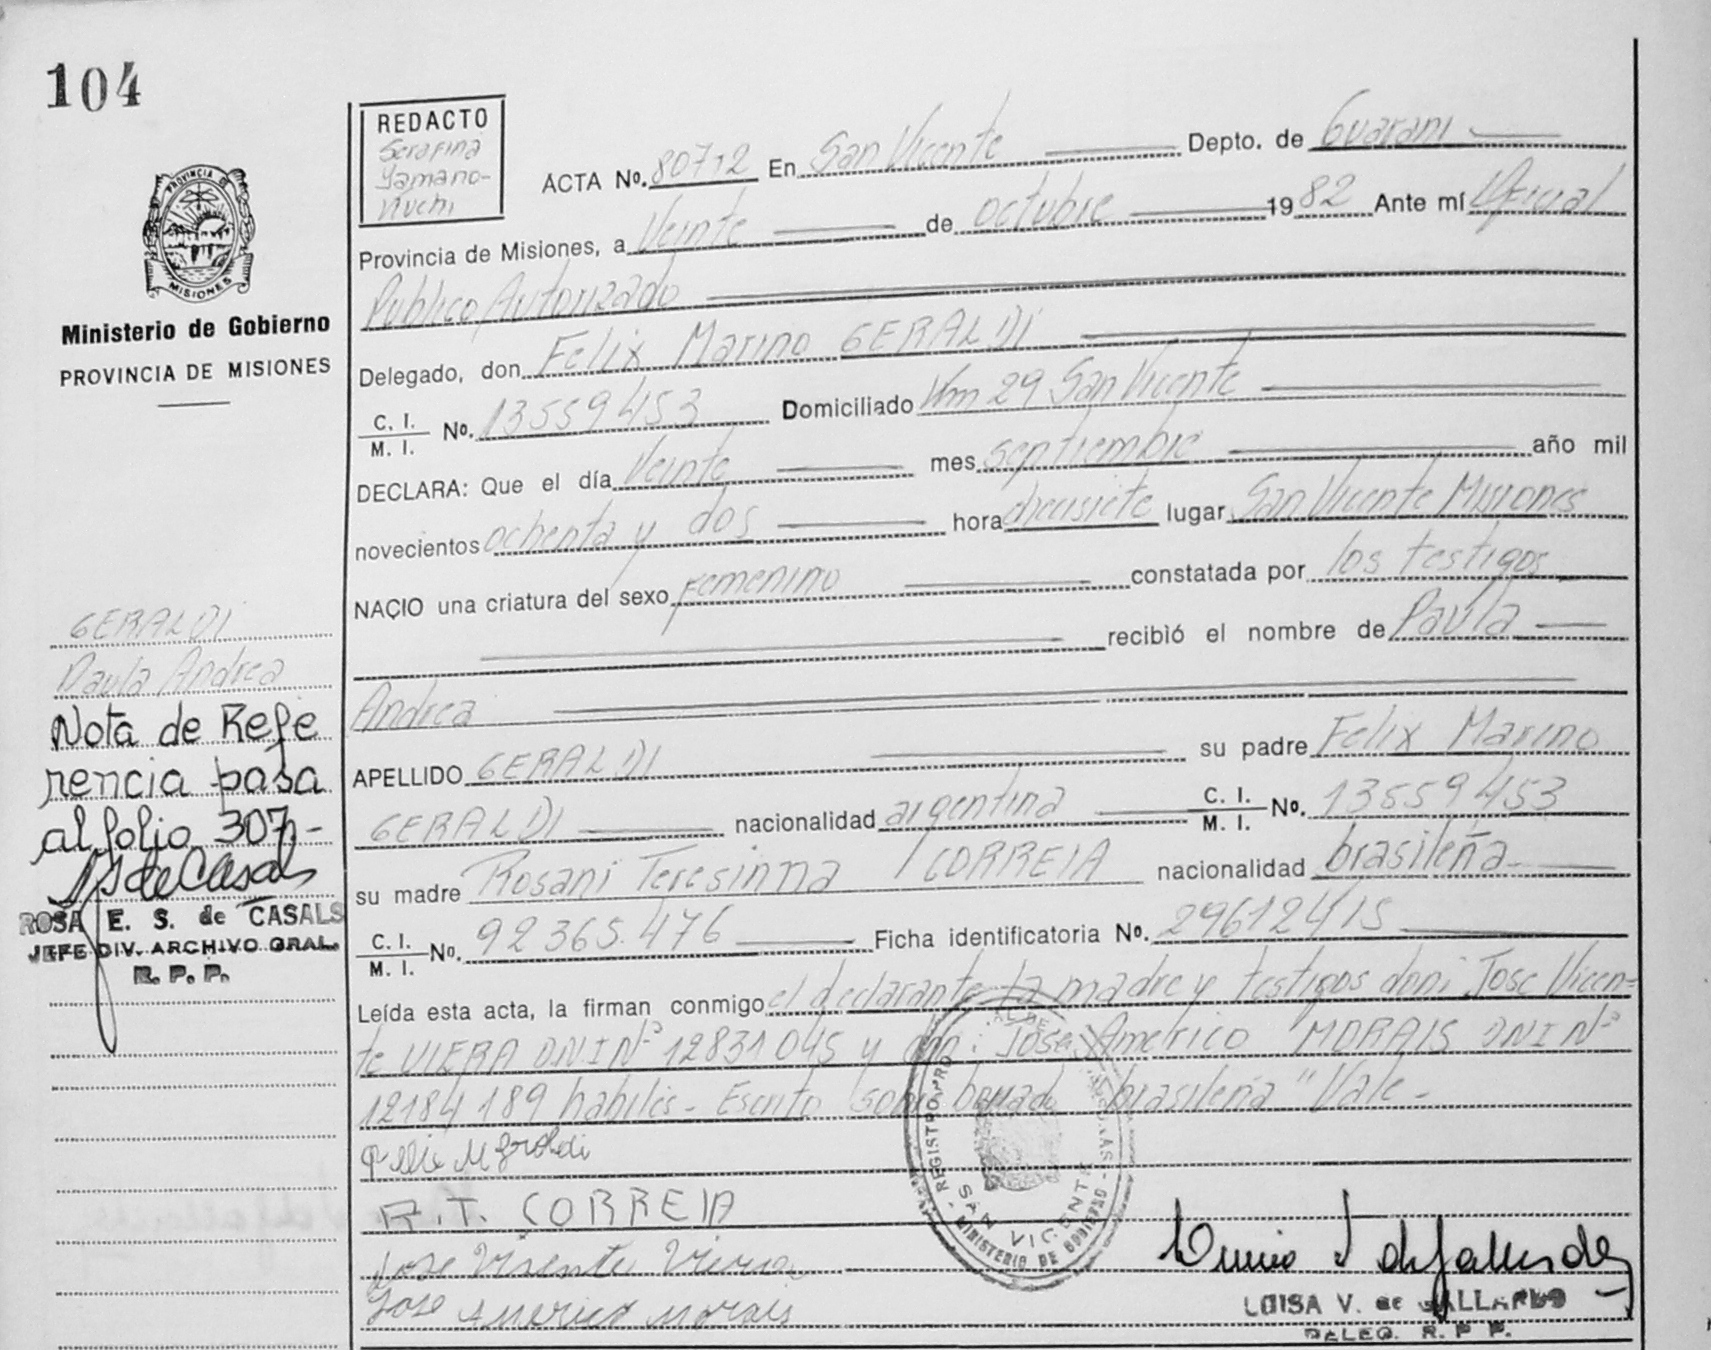 104
REDACTO
Serafina
Yamano-
iuchi
PROVINCIA DE
MISIONES
Ministerio de Gobierno
PROVINCIA DE MISIONES
ACTA No. 80712 En San Vicente Depto. de Guarani
Provincia de Misiones, a Veinte de octubre 1982 Ante mí Oficial
Publico Autorizado
Delegado, don Felix Marino GERALDI
C. I. M. I. No. 13559453 Domiciliado Km 29 San Vicente
DECLARA: Que el día Veinte mes septiembre año mil
novecientos ochenta y dos hora diecisiete lugar San Vicente Misiones
NACIO una criatura del sexo femenino constatada por los testigos
recibió el nombre de Paula
Andrea
APELLIDO GERALDI su padre Felix Marino
GERALDI nacionalidad argentina C. I. M. I. No. 13559453
su madre Rosani Teresinna CORREIA nacionalidad brasileña
C. I. M. I. No. 92365.476 Ficha identificatoria No. 29612415
Leída esta acta, la firman conmigo el declarante la madre y testigos don: Jose Vicen-
te VIERA DNI Nº 12831045 y don: Jose Americo MORAIS DNI Nº
12184189 habiles - Escrito sobre borrado "brasileña" Vale -
R.T. CORREIA
Jose Visente Viera
Jose Americo Morais
GERALDI
Paula Andrea
Nota de Refe
rencia pasa
al folio 307-
ROSA E. S. de CASALS
JEFE DIV. ARCHIVO GRAL.
R. P. P.
SAN VICENTE
MINISTERIO DE GOBIERNO
LUISA V. de GALLARDO
DELEG. R. P. P.